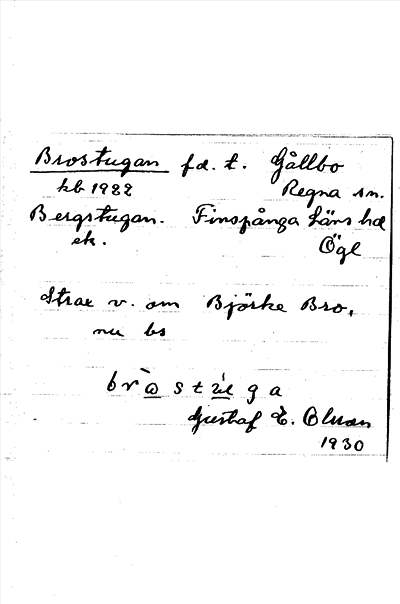 Brostugan fd. t. Gållbo
kb 1922 Regna sn.
Bergstugan. Finspånga läns hd
ek. Ögl
Strax v. om Björke Bro,
nu bs
br o s t u g a
Gustaf E. Olsson
1930